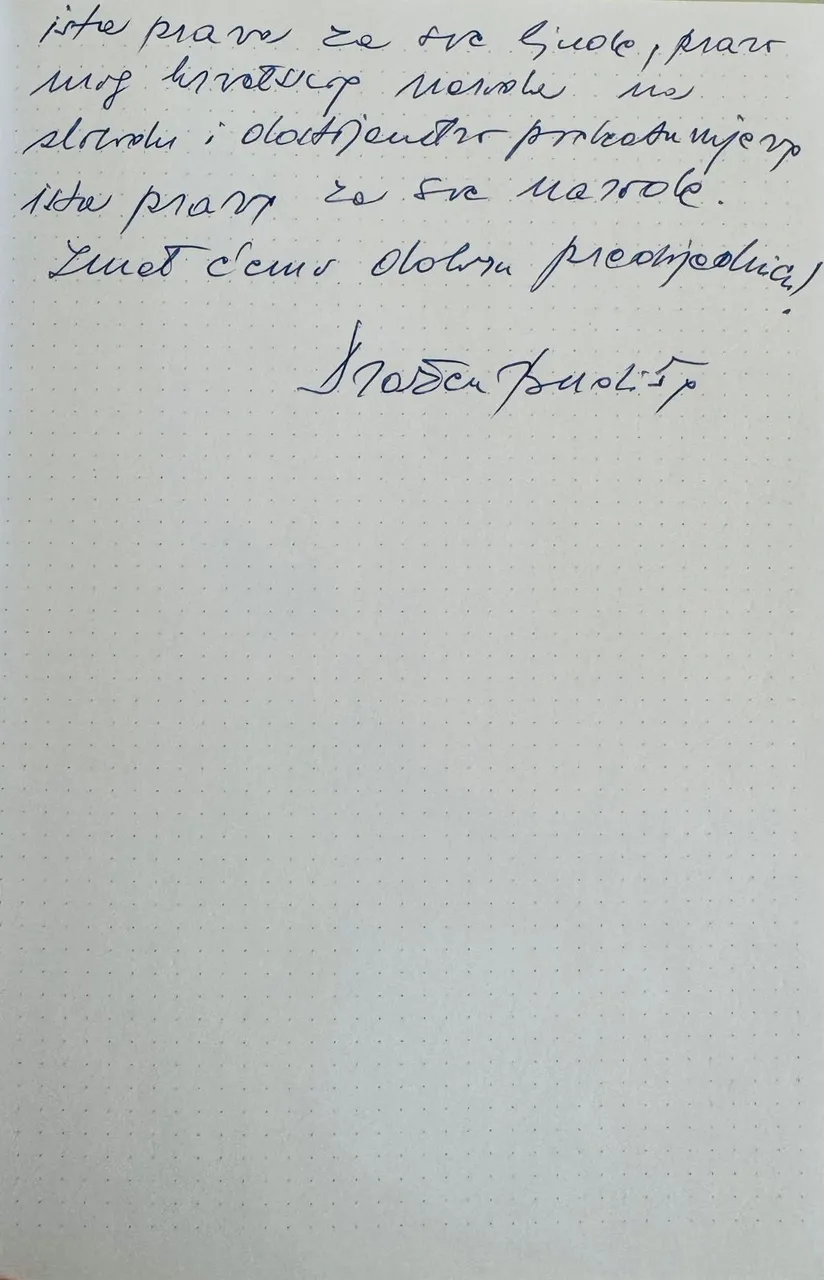 ista prava za sve ljude, pravo
mog hrvatskog naroda na
slobodu i dostojanstvo podrazumijeva
ista prava za sve narode.
Imat ćemo dobru predsjednicu!
Dražen Budiša